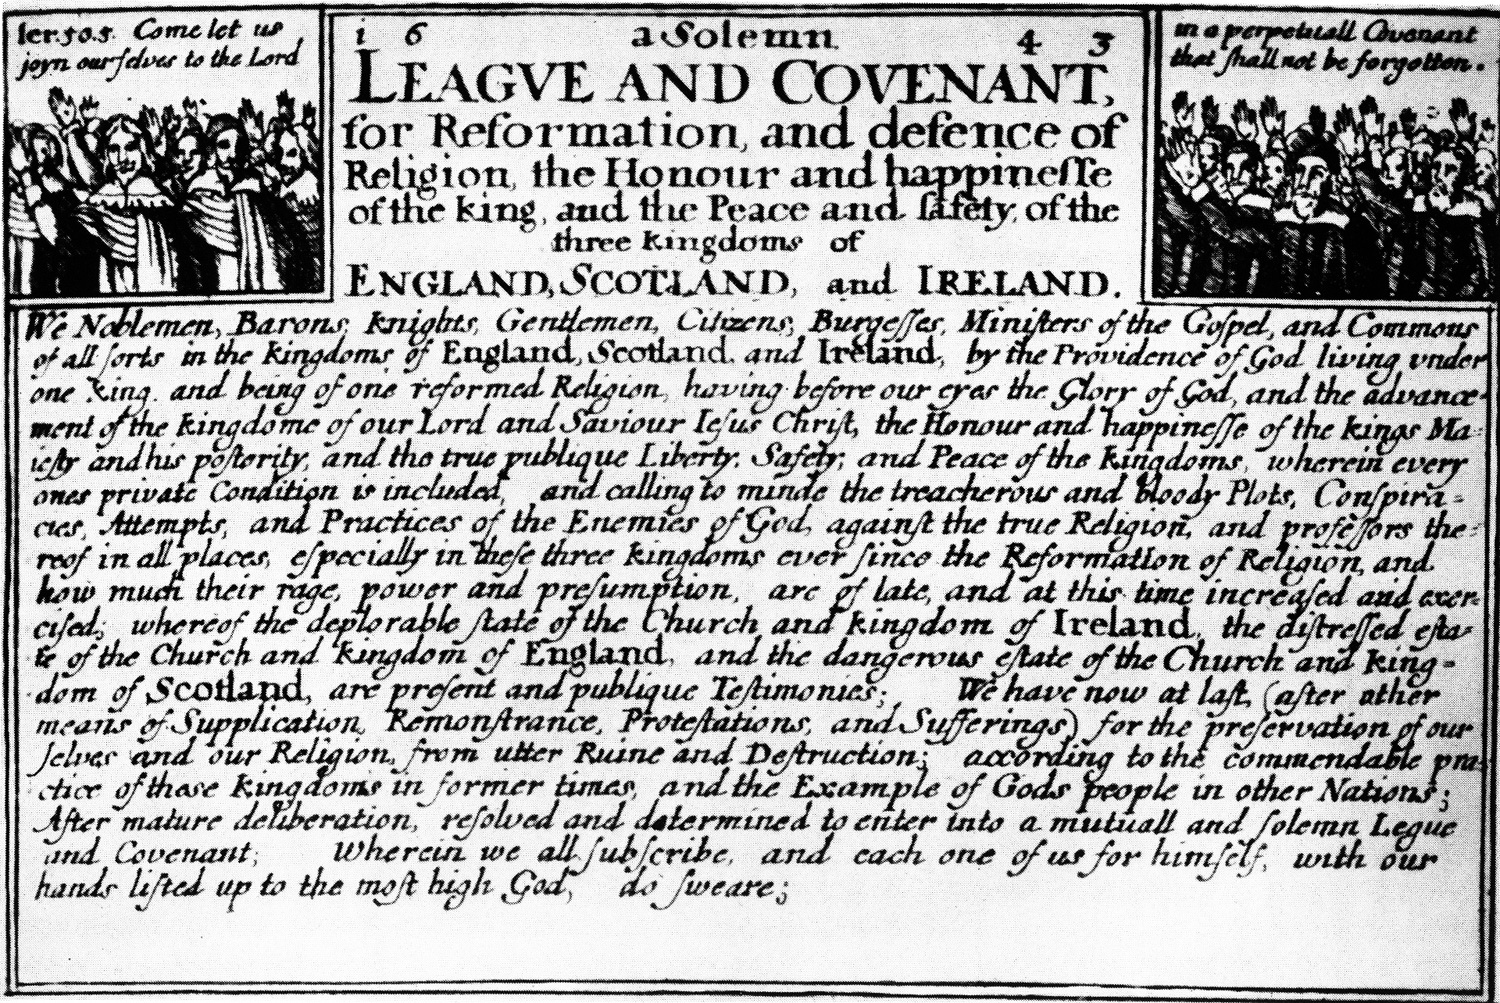 Ier. 50.5. Come let us
joyn ourſelves to the Lord
1 6 a Solemn 4 3
LEAGVE AND COVENANT,
for Reformation, and defence of
Religion, the Honour and happineſſe
of the king, and the Peace and ſafety of the
three kingdoms of
ENGLAND, SCOTLAND, and IRELAND.
in a perpetuall Covenant
that ſhall not be forgotten.
We Noblemen, Barons, knights, Gentlemen, Citizens, Burgeſſes, Miniſters of the Goſpel, and Commons
of all ſorts in the kingdoms of England, Scotland, and Ireland, by the Providence of God living vnder
one king, and being of one reformed Religion, having before our eyes the Glory of God, and the advance-
ment of the kingdome of our Lord and Saviour Ieſus Chriſt, the Honour and happineſſe of the kings Ma-
ieſty and his poſterity, and the true publique Liberty, Safety, and Peace of the kingdoms, wherein every
ones private Condition is included, and calling to minde the treacherous and bloody Plots, Conſpira=
cies, Attempts, and Practices of the Enemies of God, againſt the true Religion, and profeſſors the=
reof in all places, eſpecially in theſe three kingdoms ever ſince the Reformation of Religion, and
how much their rage, power and preſumption, are of late, and at this time increaſed and exer-
ciſed; whereof the deplorable ſtate of the Church and kingdom of Ireland, the diſtreſſed eſta-
te of the Church and kingdom of England, and the dangerous eſtate of the Church and king=
dom of Scotland, are preſent and publique Teſtimonies; We have now at laſt, (after other
means of Supplication, Remonſtrance, Proteſtations, and Sufferings) for the preſervation of our
ſelves and our Religion, from utter Ruine and Deſtruction; according to the commendable pra-
ctice of theſe kingdoms in former times, and the Example of Gods people in other Nations;
After mature deliberation, reſolved and determined to enter into a mutuall and ſolemn Legue
and Covenant; Wherein we all ſubſcribe, and each one of us for himſelf, with our
hands liſted up to the moſt high God, do ſweare;